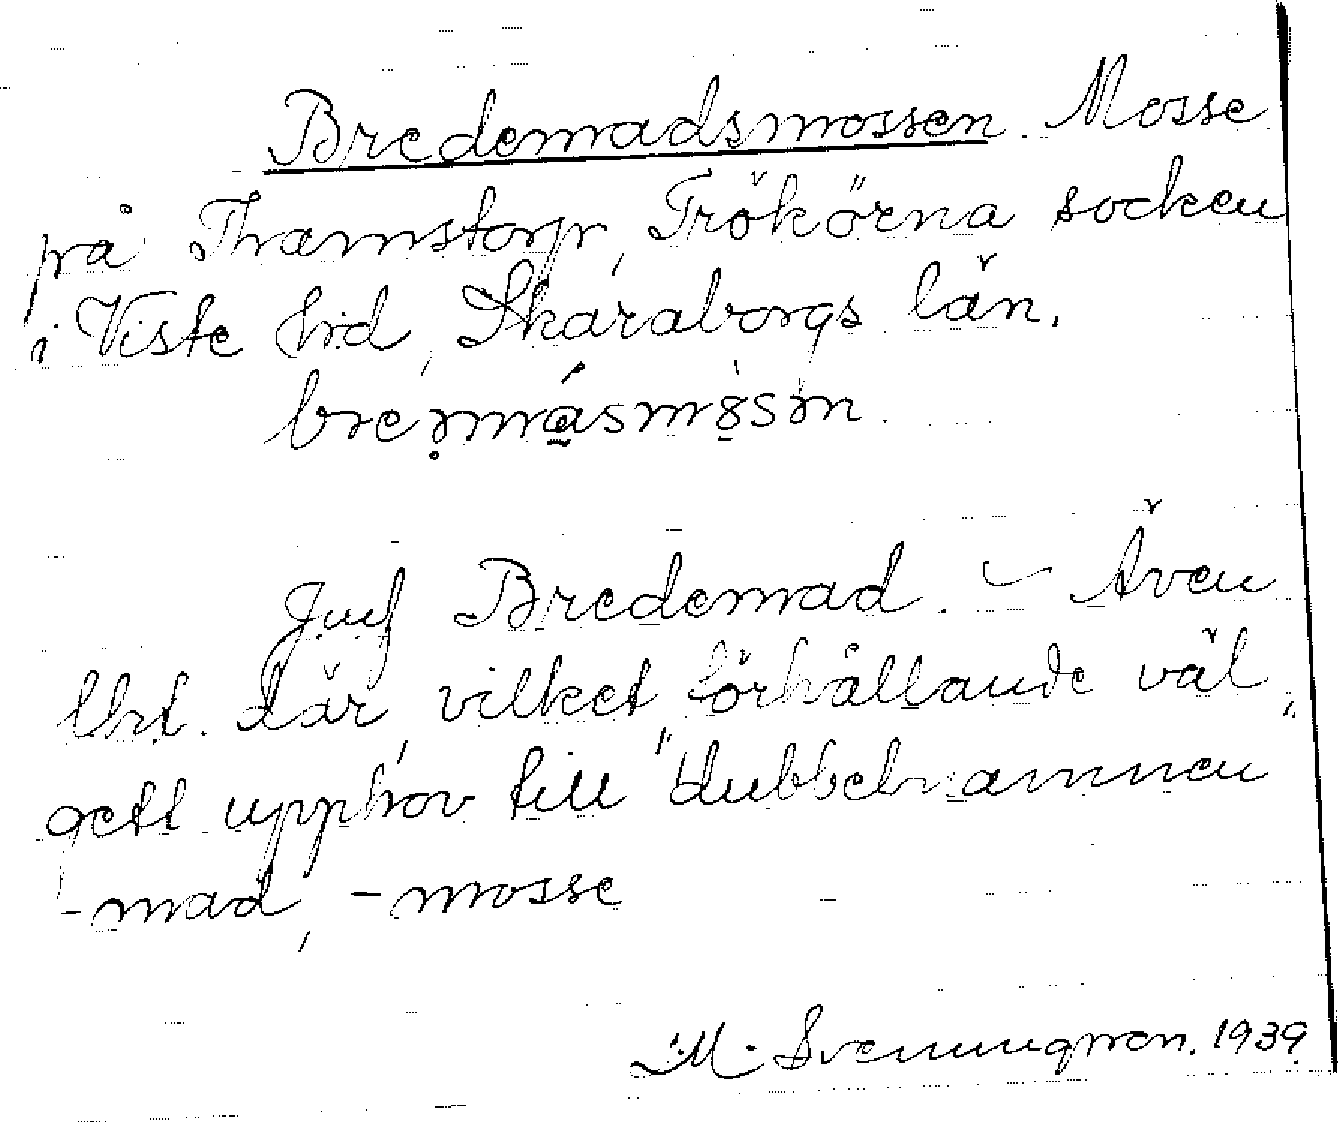 Bredemadsmossen. Mosse
på Thamstorp, Trökörna socken
i Viste hd, Skaraborgs län.
Jmf Bredemad. – Även
där, vilket förhållande väl
gett upphov till dubbelnamnen
-mad, -mosse
M. Svenungsson. 1939